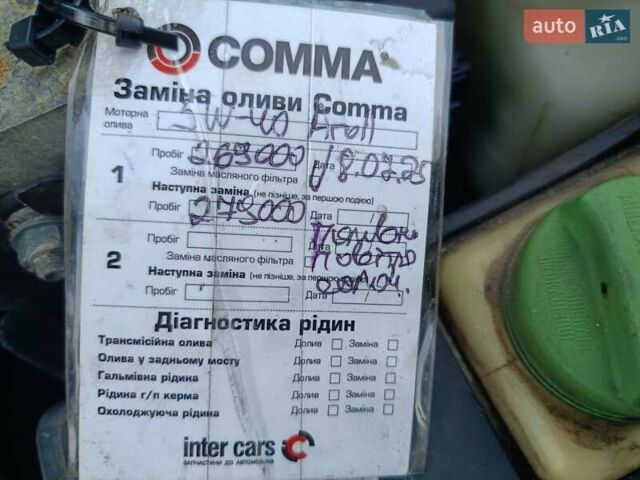 auto RIA.com
COMMA
Заміна оливи Comma
Моторна олива 5W-40 Areol
1 Пробіг 269000 Дата 18.07.25
Заміна масляного фільтра
Наступна заміна (не пізніше, за першою подією)
Пробіг 279000 Дата / /
2 Пробіг Дата
Заміна масляного фільтра
Наступна заміна (не пізніше, за першою подією)
Пробіг Дата
Діагностика рідин
Трансмісійна олива Долив Заміна
Олива у задньому мосту Долив Заміна
Гальмівна рідина Долив Заміна
Рідина г/п керма Долив Заміна
Охолоджуюча рідина Долив Заміна
inter cars
ЗАПЧАСТИНИ ДО АВТОМОБІЛІВ